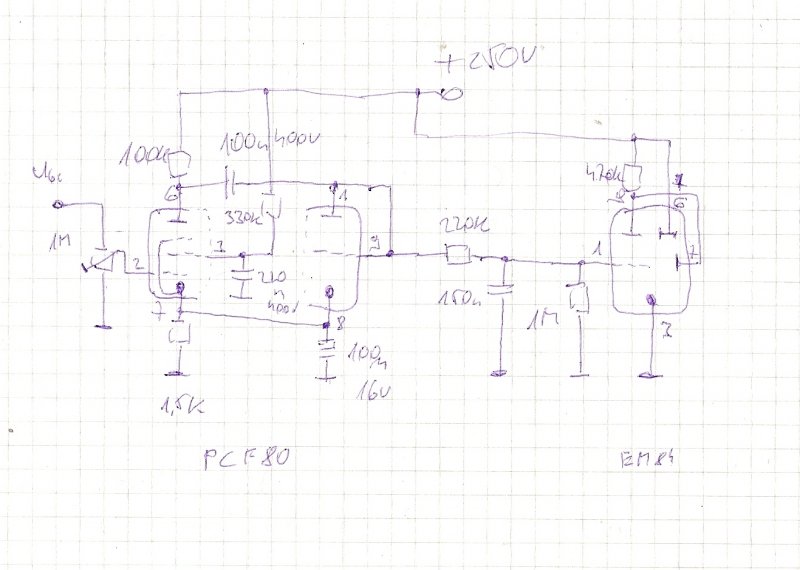 +250V
100k
100n 400V
470k
1
6
1
9
6
330k
220k
1M
2
1
9
210
n
400V
150n
1M
1
7
3
7
8
100n
16V
1,5k
PCF80
EM84